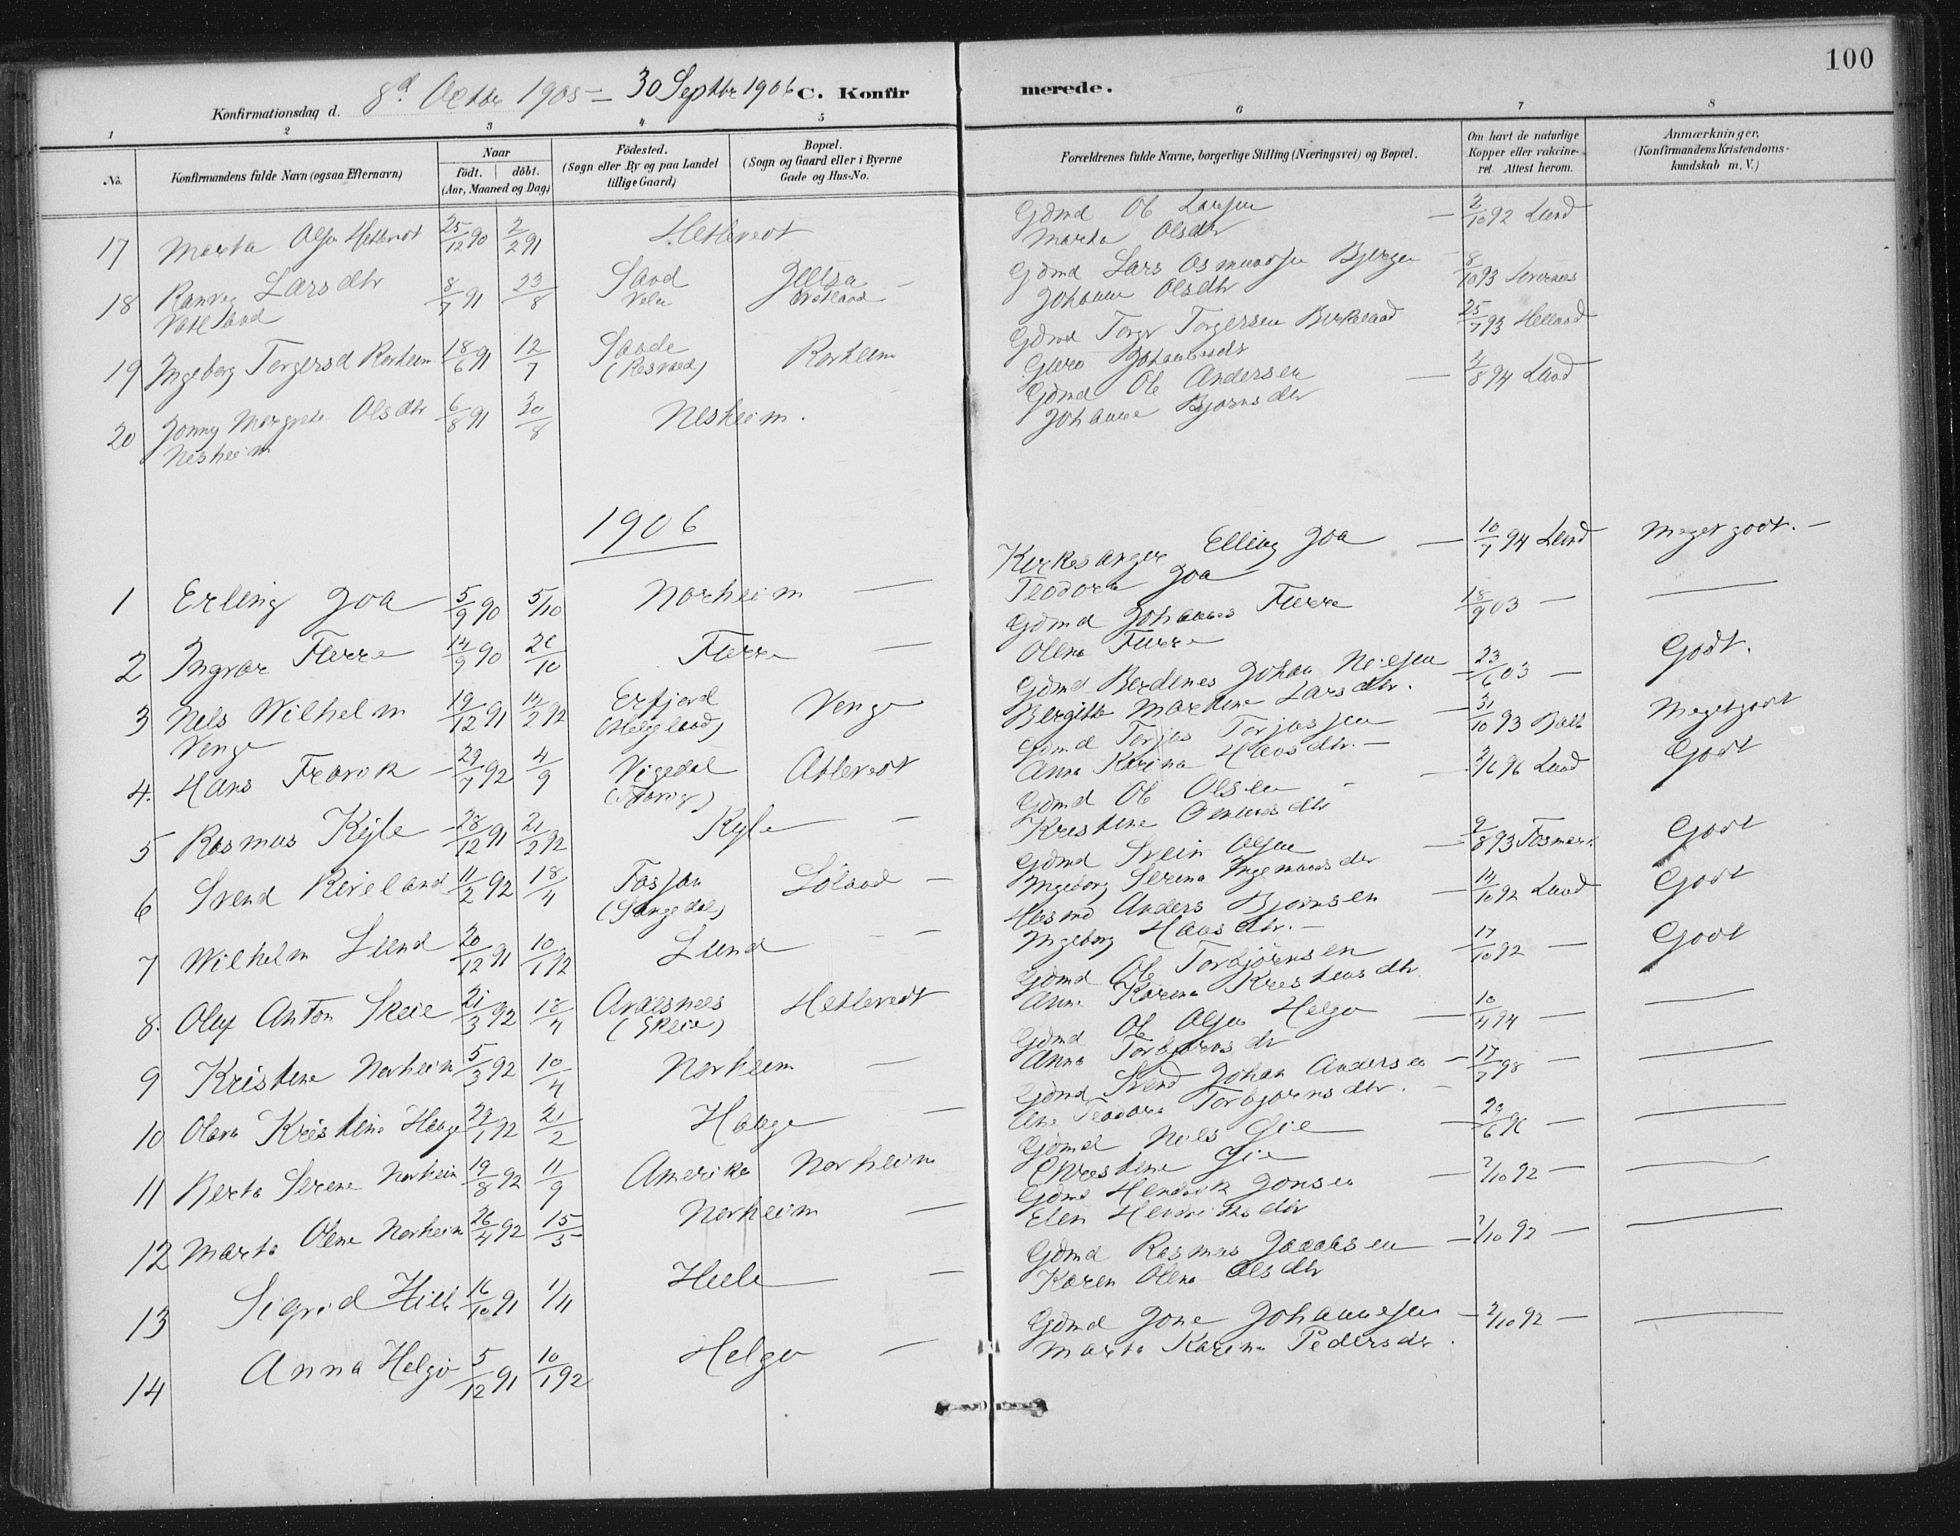 100
Konfirmationsdag d. 8d Octbr 1905 – 30 Septbr 1906 C. Konfirmerede.
1 2 3 4 5 6 7 8
No. Konfirmandens fulde Navn (ogsaa Efternavn) Naar født. døbt. (Aar, Maaned og Dag) Fødested. (Sogn eller By og paa Landet tillige Gaard) Bopæl. (Sogn og Gaard eller i Byerne Gade og Hus-No. Forældrenes fulde Navne, borgerlige Stilling (Næringsvei) og Bopæl. Om havt de naturlige Kopper eller vakcineret. Attest herom. Anmærkninger. (Konfirmandens Kristendomskundskab m. V.)
17 Marta Olsen Hetlevedt 25/12 90 2/2 91 Hetlevedt Gdmd Ol Larsen — 2/10 92 Lund
Marta Olsdtr
18 Ranvei Larsdtr 8/7 91 23/8 Sand Jelsa – Gdmd Lars Osmundsen 8/10 93
Vatland Vela Vatland Johanne Olsdtr
19 Ingeborg Torgersd Rorheim 18/6 91 12/7 Sande Rorheim Gdmd Torger Torgersen Birkeland 25/7 93 Helland
Guro Johannesdtr
20 Jonny Margrete Olsdtr 6/8 91 30/8 Nesheim. Gdmd Ol Andersen — 2/8 94 Lund
Nesheim Johanne Bjørnsdtr
1906
1 Erling Joa 5/9 90 5/10 Norheim — Kirkesanger Elling Joa — 10/7 94 Lund Meget godt. —
Teodora Joa
2 Ingvar Furre 14/9 90 26/10 Furre — Gdmd Johannes Furre 18/9 03 — —
Olena Furre
3 Nels Wilhelm 19/12 91 14/2 92 Erfjord Venge Gdmd Berdenes Johan Nielsen — 23/6 03 — Godt.
Venge (Helgeland) Bergitte Martine Larsdtr.
4. Hans Frøvik 29/7 92 4/9 Vigedal Atlevedt Gdmd Torjus Torjussen — 31/10 93 Meget godt
Anna Karina Hansdtr. —
5 Rasmus Kyle 28/12 91 21/2 92 Kyle — Gdmd Ol Olsen — 2/6 96 Lund Godt
Kristine
6 Svend Reieland 11/2 92 18/4 Fosjan Løland — Gdmd Svein Olsen — 2/8 93 Godt
(Sangedal) Ingeborg Serina
7 Wilhelm Lund 20/12 91 10/1 92 Lund — Husmd Anders Bjørnsen — 14/10 92 Lund Godt
Ingeborg Hansdtr. —
8. Oluf Anton Skeie 21/3 92 18/4 Aardesnes Hetlevedt Gdmd Ol Torbjørnsen — 17/10 92 — Godt
(Skeie) Anne Karina Kristensdtr
9 Kristine Norheim 5/3 92 10/4 Norheim — Gdmd Ol Olsen Helgø — 10/4 94 — —
Anna Torbjørnsdtr
10 Olava Kristine Hauge 29/1 92 21/2 Hauge — Gdmd Svend Johan Andersen — 17/7 98 — —
Ane Teodora Torbjørnsdtr. —
11 Berta Serene Norheim 19/8 92 11/9 Amerika Norheim Gdmd Nils Øie — 29/6 96 — —
Christine Øie
12 Marta Olene Norheim 26/4 92 15/5 Norheim — Gdmd Hendrik Jonsen — 2/10 92 — —
Elen Hendriksdtr
13 Sigrid Hille 16/10 91 1/11 Hille — Gdmd Rasmus Jacobsen — 2/10 92 — —
Karen Olena Olsdtr
14 Anna Helgø 5/12 91 10/1 92 Helgø — Gdmd Jone Johannesen — 2/10 92 — —
Marta Karina Pedersdtr.